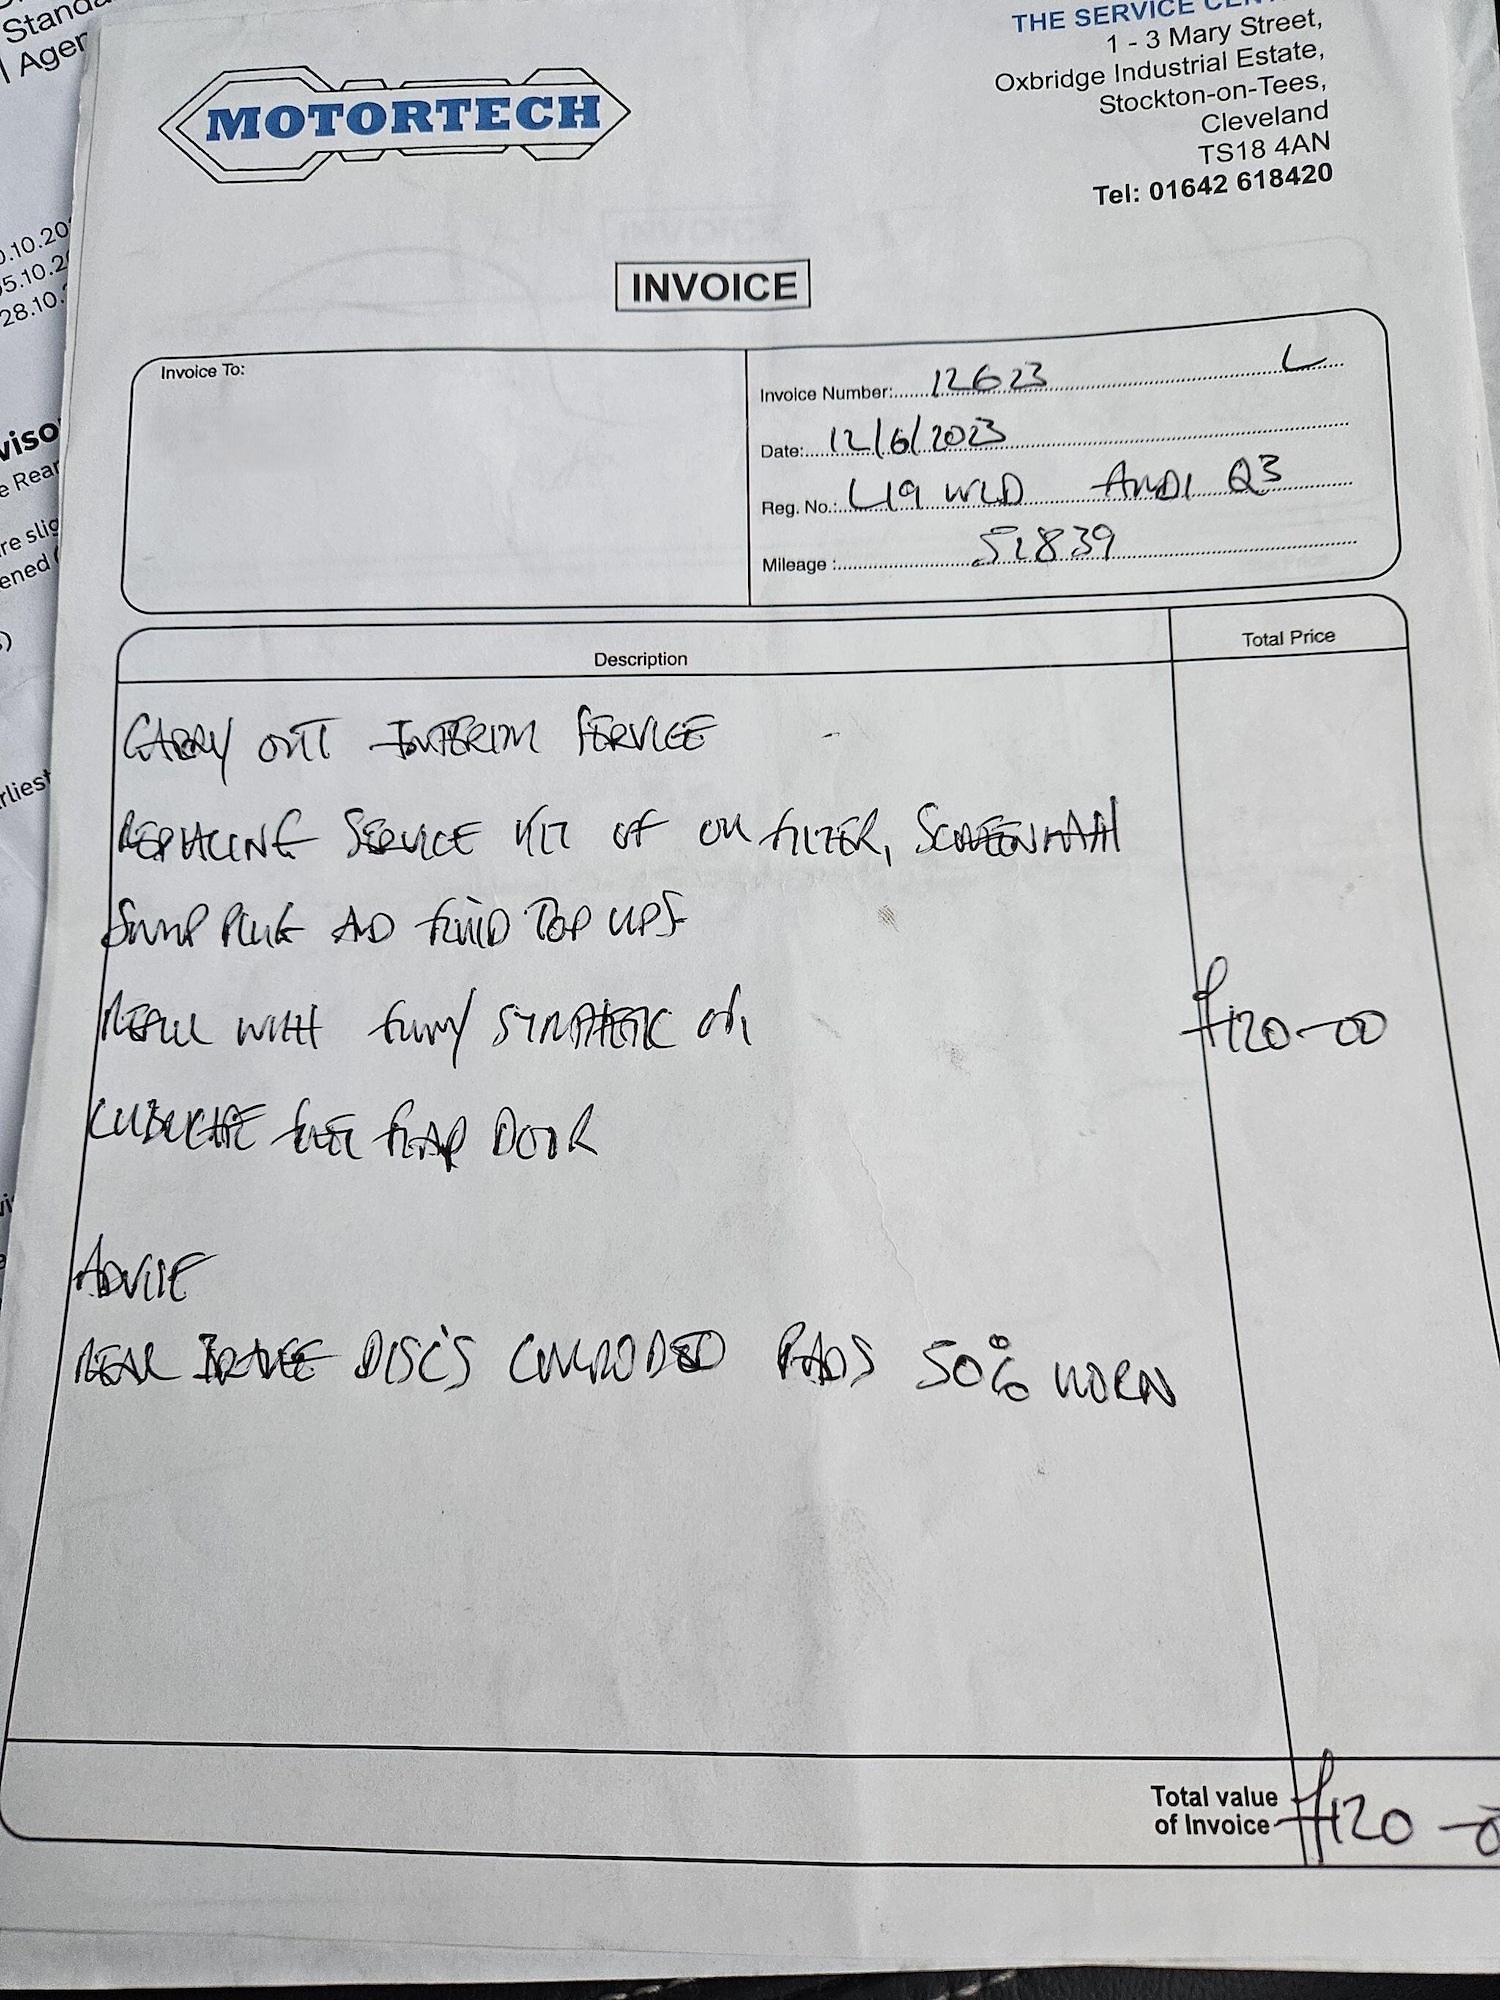 Standa
Agen
0.10.20
05.10.20
28.10.
viso
e Rear
re slig
ened
s)
rliest
MOTORTECH
THE SERVICE CENT
1 - 3 Mary Street,
Oxbridge Industrial Estate,
Stockton-on-Tees,
Cleveland
TS18 4AN
Tel: 01642 618420
INVOICE
Invoice To:
Invoice Number: 12623 L
Date: 12/6/2023
Reg. No.: L19 WLD AUDI Q3
Mileage : 51839
Description Total Price
CARRY OUT INTERIM SERVICE
REPLACING SERVICE KIT OF OIL FILTER, SCREENWASH
SUMP PLUG AD FLUID TOP UPS
REFILL WITH FULLY SYNTHETIC OIL £120-00
LUBRICATE FUEL FLAP DOOR
ADVISE
REAR BRAKE DISC'S CORRODED PADS 50% WORN
Total value
of Invoice £120-0